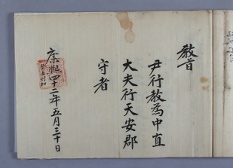 教旨
尹行教為中直
大夫行天安郡
守者
康熙四十二年五月三十日